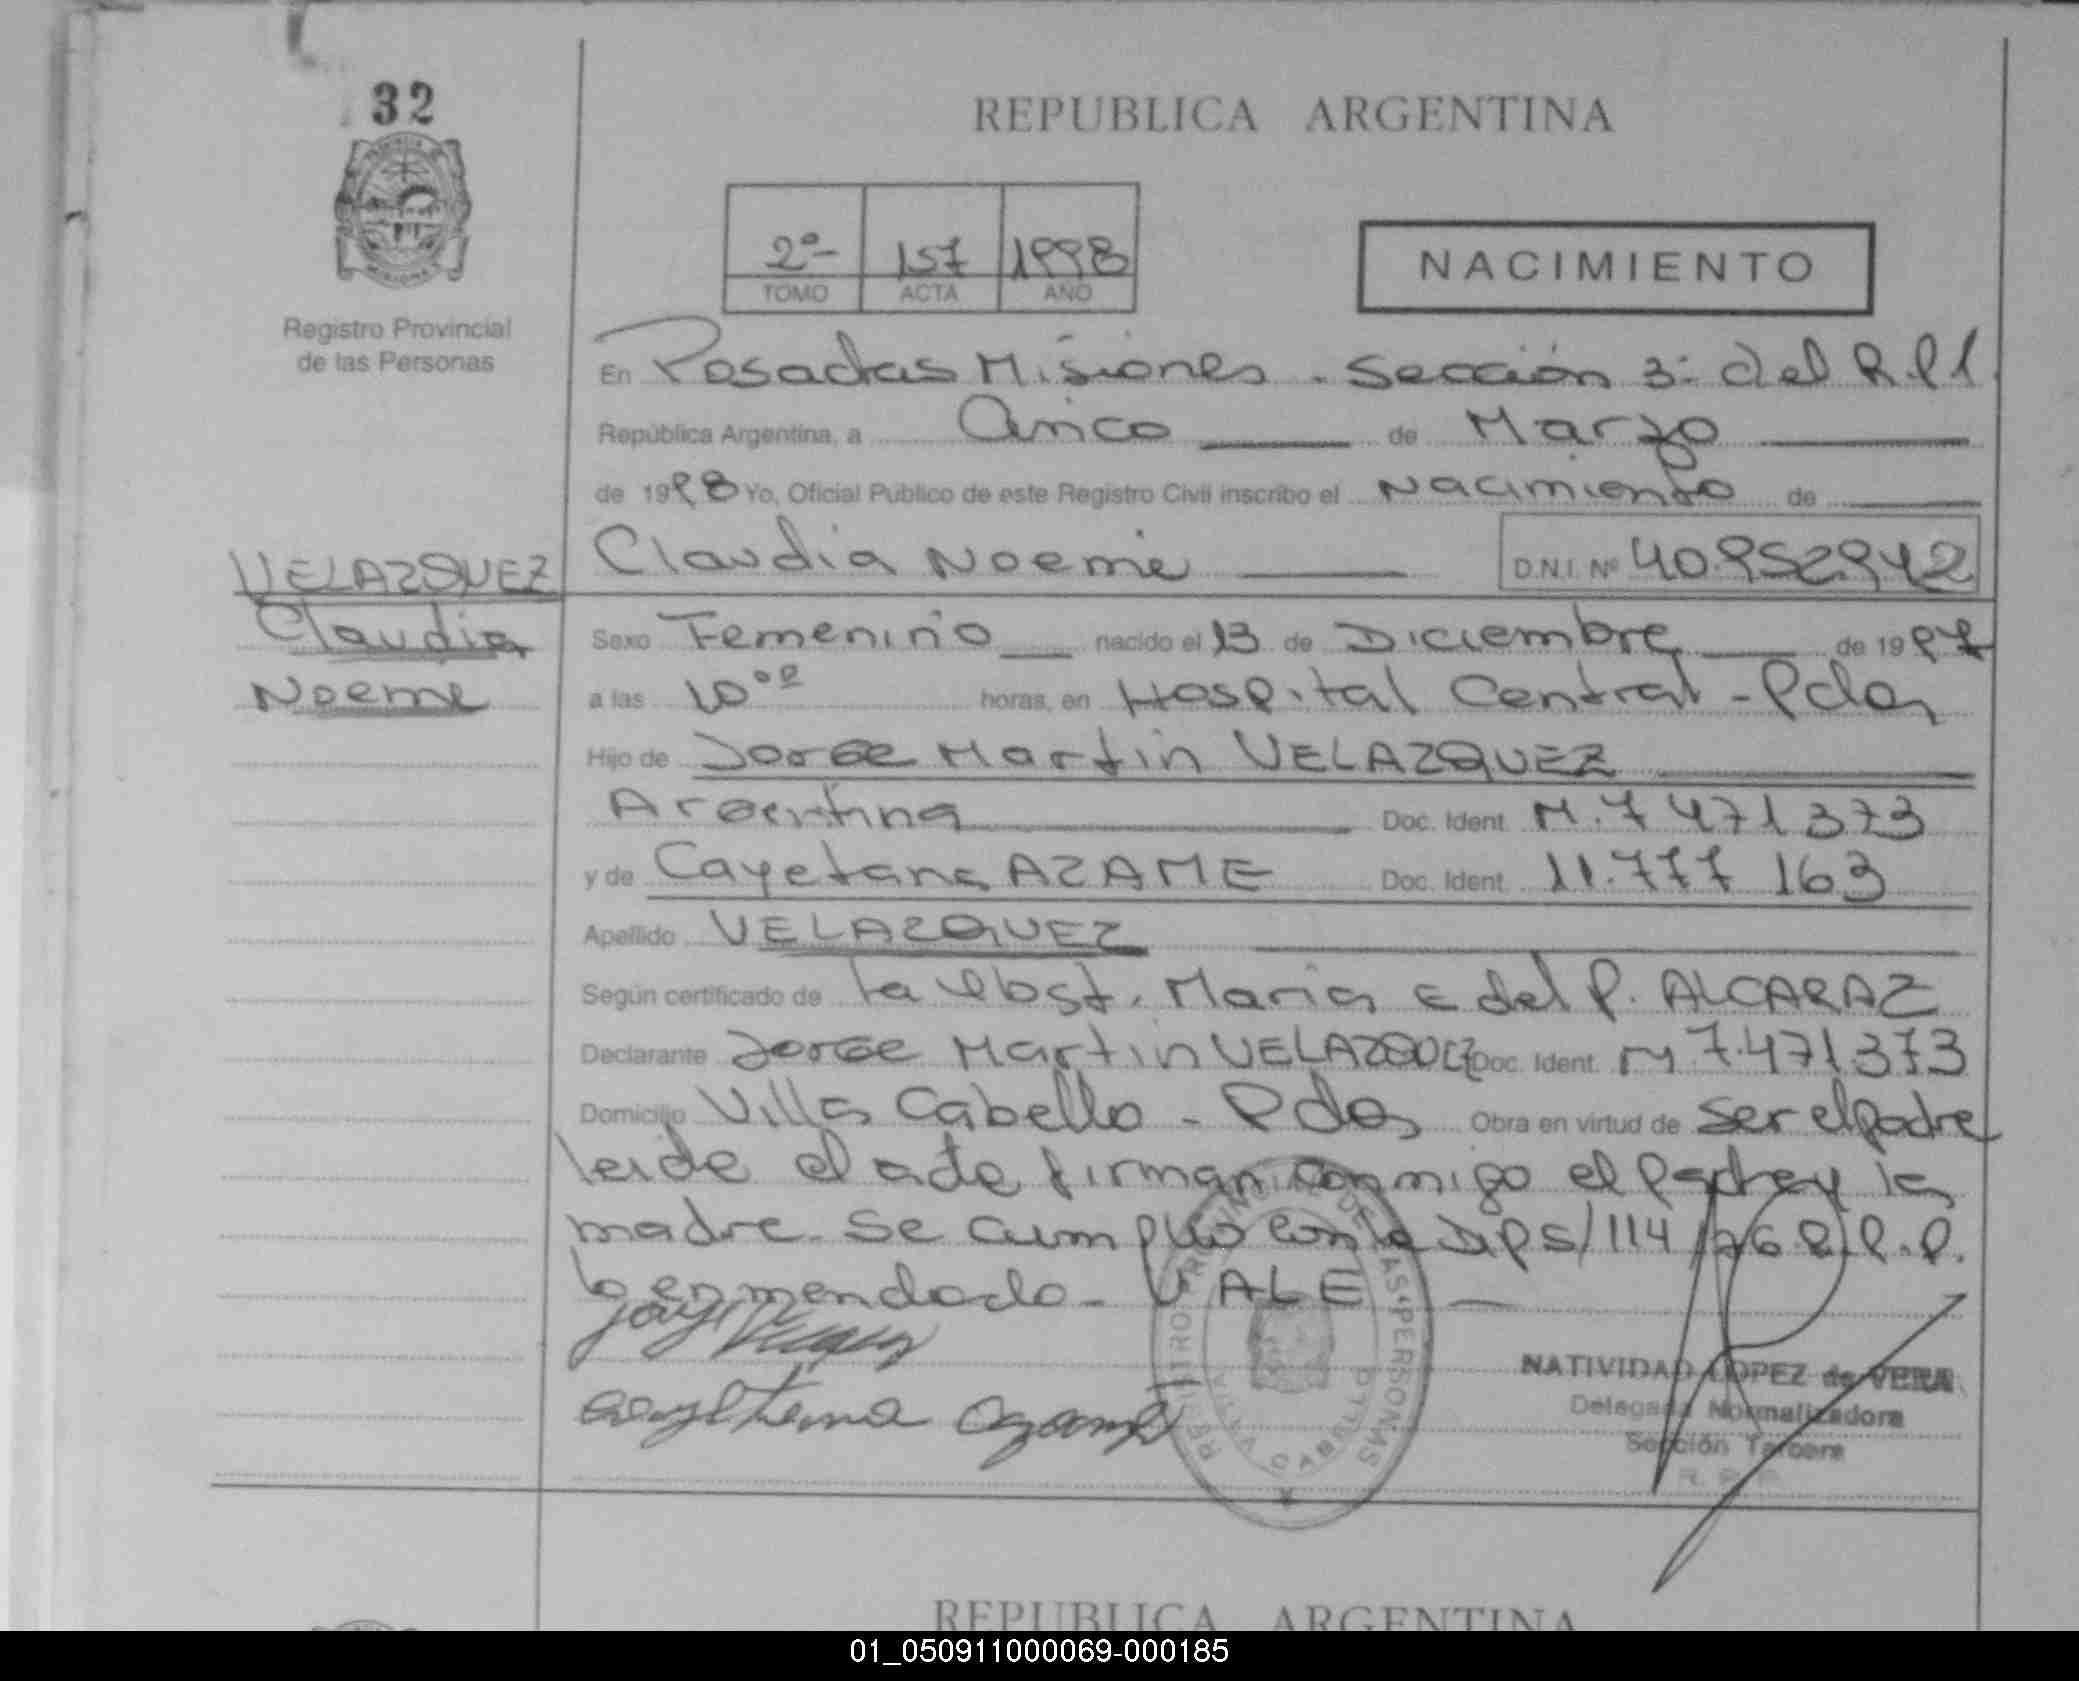 32
REPUBLICA ARGENTINA
2º 157 1998
TOMO ACTA AÑO
NACIMIENTO
Registro Provincial
de las Personas
En Posadas Misiones - Sección 3ª del R.P.
República Argentina, a Cinco de Marzo
de 1998 Yo, Oficial Publico de este Registro Civil inscribo el Nacimiento de
VELAZQUEZ Claudia Noemie D.N.I. Nº 40.952.942
Claudia Sexo Femenino nacido el 13 de Diciembre de 1997
Noemie a las 10ºº horas, en Hospital Central - Pdas
Hijo de Jorge Martin VELAZQUEZ
Argentina Doc. Ident. M. 7 471 373
y de Cayetana AZAME Doc. Ident. 11.777 163
Apellido VELAZQUEZ
Según certificado de la Obst. Maria E del P. ALCARAZ
Declarante Jorge Martin VELAZQUEZ Doc. Ident. M 7.471.373
Domicilio Villa Cabello - Pdas Obra en virtud de ser el padre
leida el acta firman conmigo el padre y la
madre. Se cumplio con la Disp S/114/96 R.P.P.
lo enmendado - VALE
REGISTRO PROVINCIAL DE LAS PERSONAS
VILLA CABELLO
NATIVIDAD LOPEZ de VERA
Delegada Normalizadora
Sección Tercera
R. P. P.
REPUBLICA ARGENTINA
01_050911000069-000185